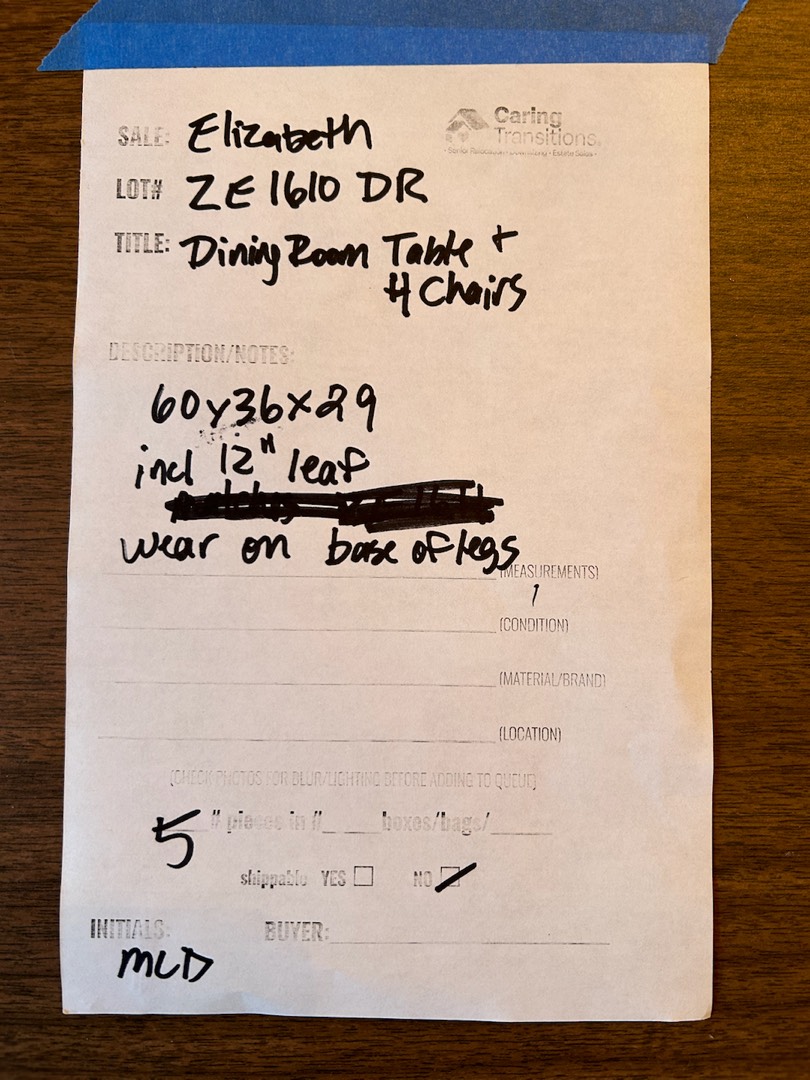 SALE: Elizabeth
Caring
Transitions
LOT# ZE1610 DR
TITLE: Dining Room Table +
4 Chairs
DESCRIPTION/NOTES:
60 x 36 x 29
incl 12" leaf
wear on base of legs
(MEASUREMENTS)
(CONDITION)
(MATERIAL/BRAND)
(LOCATION)
(CHECK PHOTOS FOR BLUR/LIGHTING BEFORE ADDING TO QUEUE)
5 # pieces in #_ ___boxes/bags/______
shippable YES ☐ NO ☑
INITIALS: BUYER:
MLD